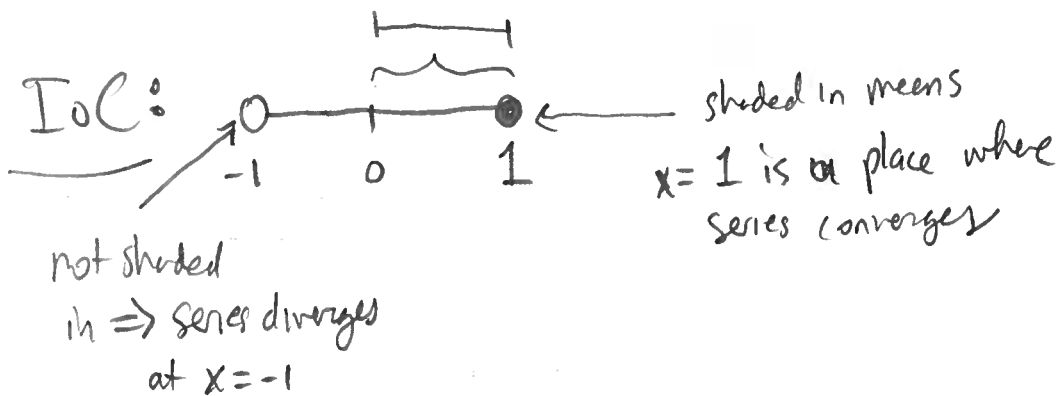 IoC:
-1 0 1
shaded in means
x = 1 is a place where
series converges
not shaded
in => series diverges
at x = -1